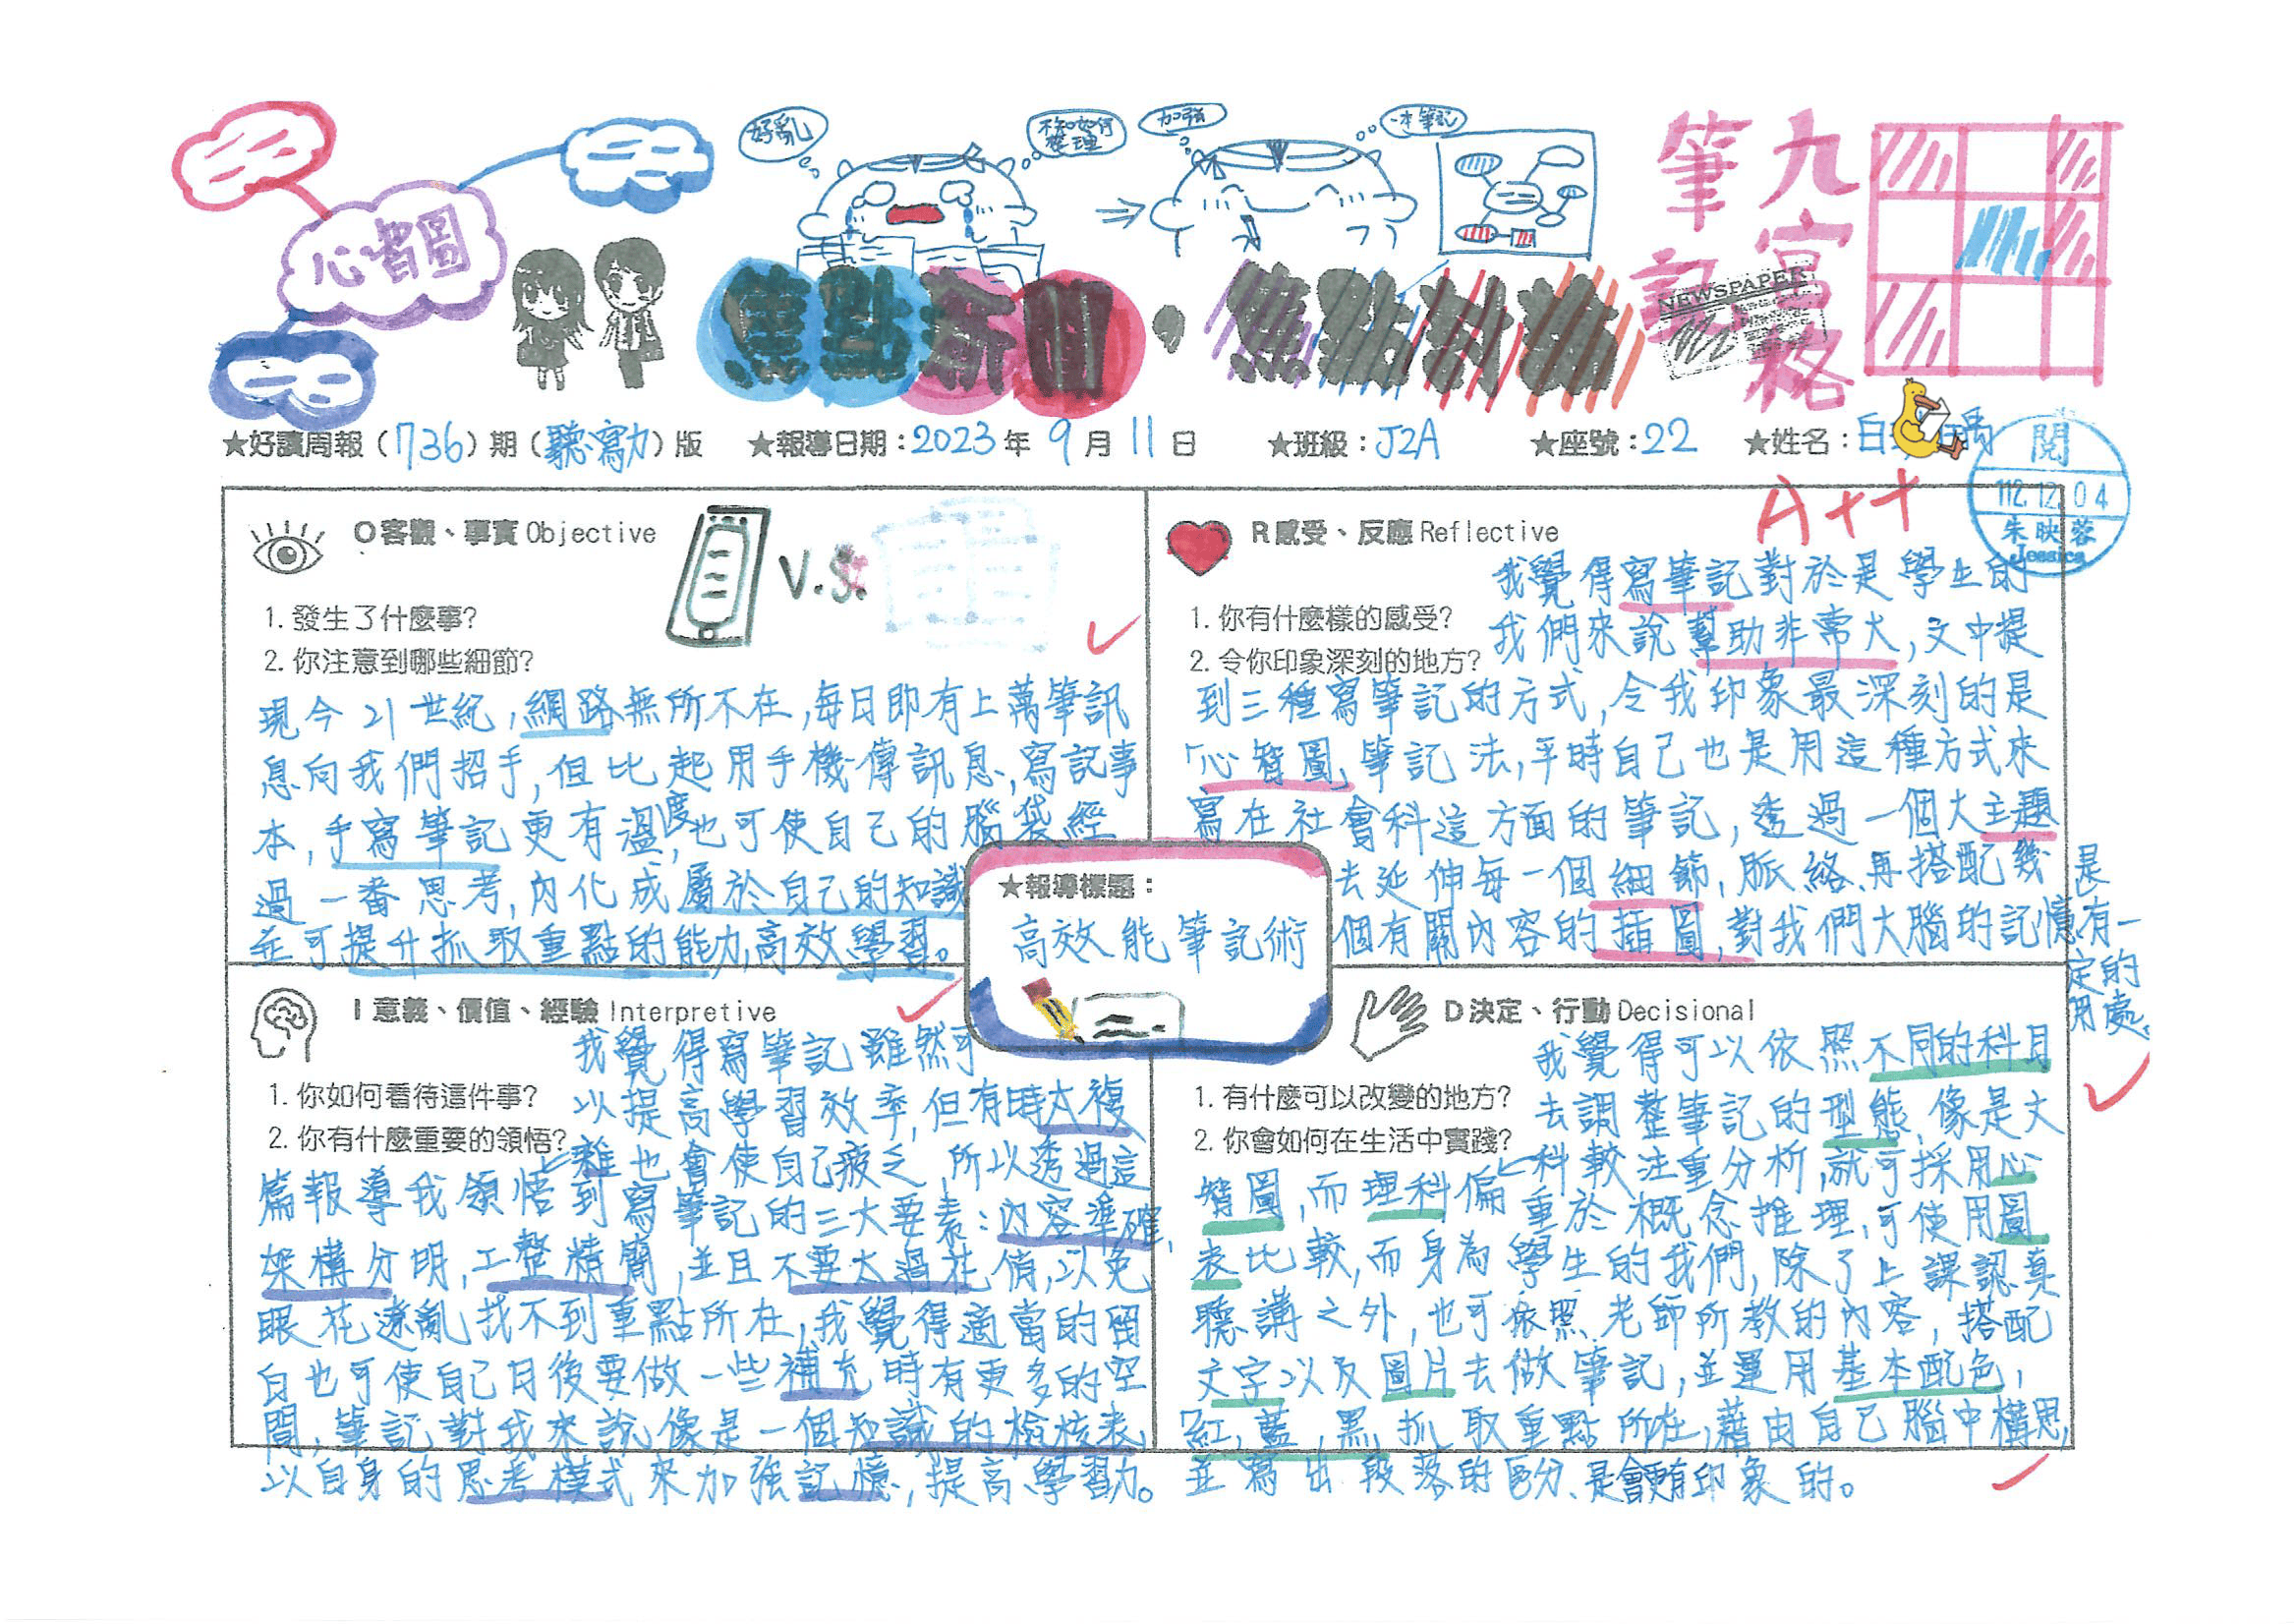 心智圖
好亂
不知如何
整理
加強
一本筆記
九宮格
筆記
焦點新聞,焦點討論
NEWSPAPER
★好讀周報(736)期(聽寫力)版 ★報導日期:2023年9月11日 ★班級:J2A ★座號:22 ★姓名:白
閱
112.12.04
朱映蓉
Jessica
A++
O客觀、事實Objective
V.S.
1. 發生了什麼事?
2. 你注意到哪些細節?
現今21世紀,網路無所不在,每日即有上萬筆訊
息向我們招手,但比起用手機傳訊息,寫記事
本,手寫筆記更有溫度,也可使自己的腦袋經
過一番思考,內化成屬於自己的知識
並可提升抓取重點的能力,高效學習。
R感受、反應Reflective
1. 你有什麼樣的感受?
2. 令你印象深刻的地方?
我覺得寫筆記對於是學生的
我們來說幫助非常大,文中提
到三種寫筆記的方式,令我印象最深刻的是
「心智圖」筆記法,平時自己也是用這種方式來
寫在社會科這方面的筆記,透過一個大主題
去延伸每一個細節,脈絡,再搭配幾
個有關內容的插圖,對我們大腦的記憶是有一
定的
用處。
★報導標題:
高效能筆記術
I意義、價值、經驗Interpretive
1. 你如何看待這件事?
2. 你有什麼重要的領悟?
我覺得寫筆記雖然可
以提高學習效率,但有時太複
雜也會使自己疲乏,所以透過這
篇報導我領悟到寫筆記的三大要素:內容準確,
架構分明,工整精簡,並且不要太過花俏,以免
眼花遼亂找不到重點所在,我覺得適當的留
白也可使自己日後要做一些補充時有更多的空
間,筆記對我來說像是一個知識的檢核表,
以自身的思考模式來加強記憶,提高學習力。
D決定、行動Decisional
1. 有什麼可以改變的地方?
2. 你會如何在生活中實踐?
我覺得可以依照不同的科目
去調整筆記的型態,像是文
科較注重分析,就可採用心
智圖,而理科偏重於概念推理,可使用圖
表比較,而身為學生的我們,除了上課認真
聽講之外,也可依照老師所教的內容,搭配
文字以及圖片去做筆記,並運用基本配色,
「紅,藍,黑」抓取重點所在,藉由自己腦中構思,
並寫出段落的區分,是會更有印象的。